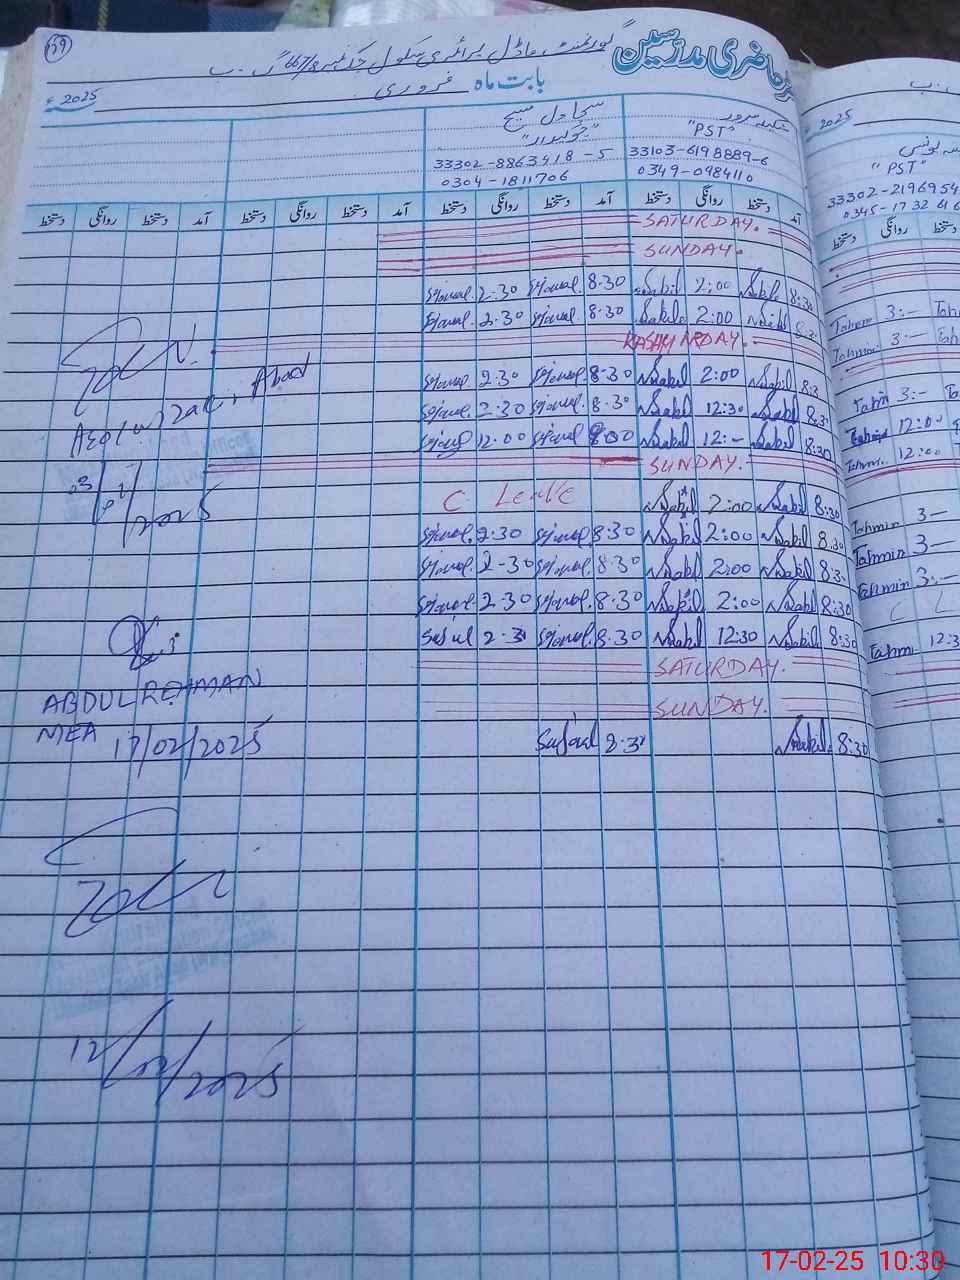 139
حاضری مدرسین گورنمنٹ ماڈل پرائمری سکول چک نمبر 667/8 گ ب
بابت ماہ فروری 2025ء
سجاول مسیح
"چوکیدار" "PST"
33302-8863418-5 33103-6198889-6
0304-1811706 0349-0984110
دستخط روانگی دستخط آمد دستخط روانگی دستخط آمد دستخط روانگی دستخط آمد دستخط روانگی دستخط آمد
SATURDAY.
SUNDAY.
Sjawal. 2.30 Sjawal. 8.30 Sakil 2:00 Sakil. 8:30
Sjawal. 2.30 Sjawal. 8.30 Sakil. 2:00 Sakil 8.30
KASHMIR DAY.
Sjawal 2.30 Sjawal. 8.30 Sakil 2:00 Sakil 8:3
Sjawal. 2:30 Sjawal. 8.30 Sakil 12:30 Sakil 8:30
Sjawal 12.00 Sjawal 8:00 Sakil 12:- Sakil 8:30
SUNDAY.
C. Leave Sakil 2:00 Sakil 8:30
Sjawal. 2.30 Sjawal. 8.30 Sakil 2:00 Sakil 8.30
Sjawal. 2-30 Sjawal. 8.30 Sakil 2:00 Sakil 8:30
Sjawal. 2.30 Sjawal. 8.30 Sakil 2:00 Sakil 8:30
Sajal 2.30 Sjawal. 8.30 Sakil 12:30 Sakil 8:30
SATURDAY.
SUNDAY.
Sajawal 8.30 Sakil. 8:30
03/02/2025
ABDUL REHMAN
MEA 17/02/2025
12/02/2025
2025ء
"PST"
33302-2196954
0345-1732616
دستخط روانگی دستخط
Tahmin 3:- Tah
Tahmin 3:- Tah
Tahmin 3:- Ta
Tahmin 12:00
Tahmin. 12:00
Tahmin 3-
Tahmin 3-
Tahmin 3:-
C L
Tahmin 12:3
17-02-25 10:30